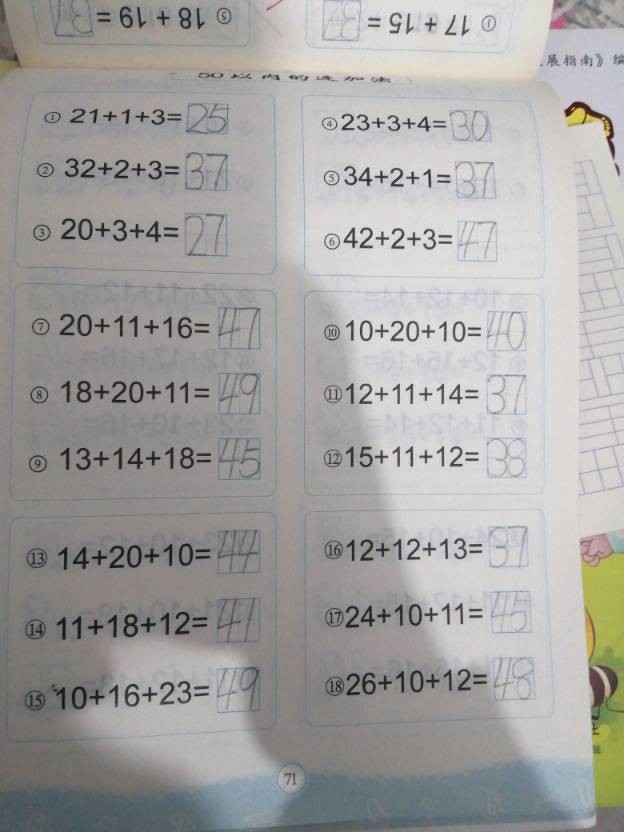 ① 17 + 15 =
⑤ 18 + 19 = 37
50以内的连加法
① 21+1+3= 25
② 32+2+3= 37
③ 20+3+4= 27
④ 23+3+4= 30
⑤ 34+2+1= 37
⑥ 42+2+3= 47
⑦ 20+11+16= 47
⑧ 18+20+11= 49
⑨ 13+14+18= 45
⑩ 10+20+10= 40
⑪ 12+11+14= 37
⑫ 15+11+12= 38
⑬ 14+20+10= 44
⑭ 11+18+12= 41
⑮ 10+16+23= 49
⑯ 12+12+13= 37
⑰ 24+10+11= 45
⑱ 26+10+12= 48
71
展指南》编